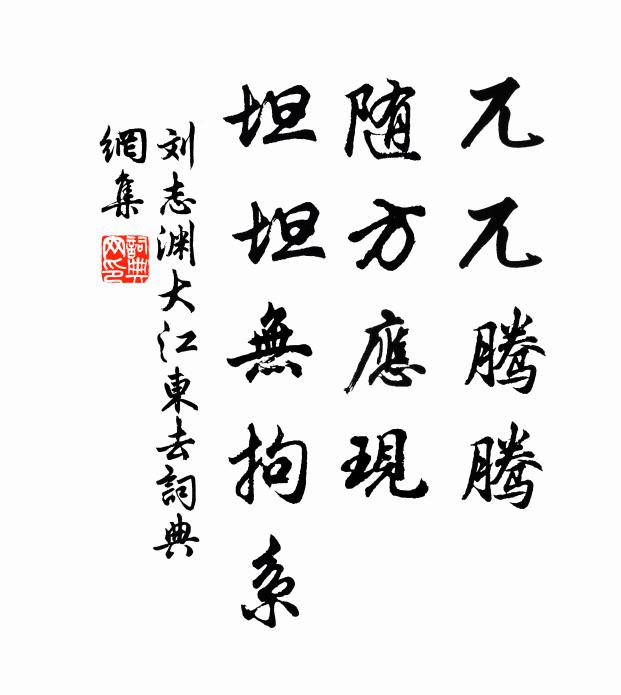 兀兀騰騰
随方應現
坦坦無拘系
刘志渊大江東去詞典
網集
詞典網印